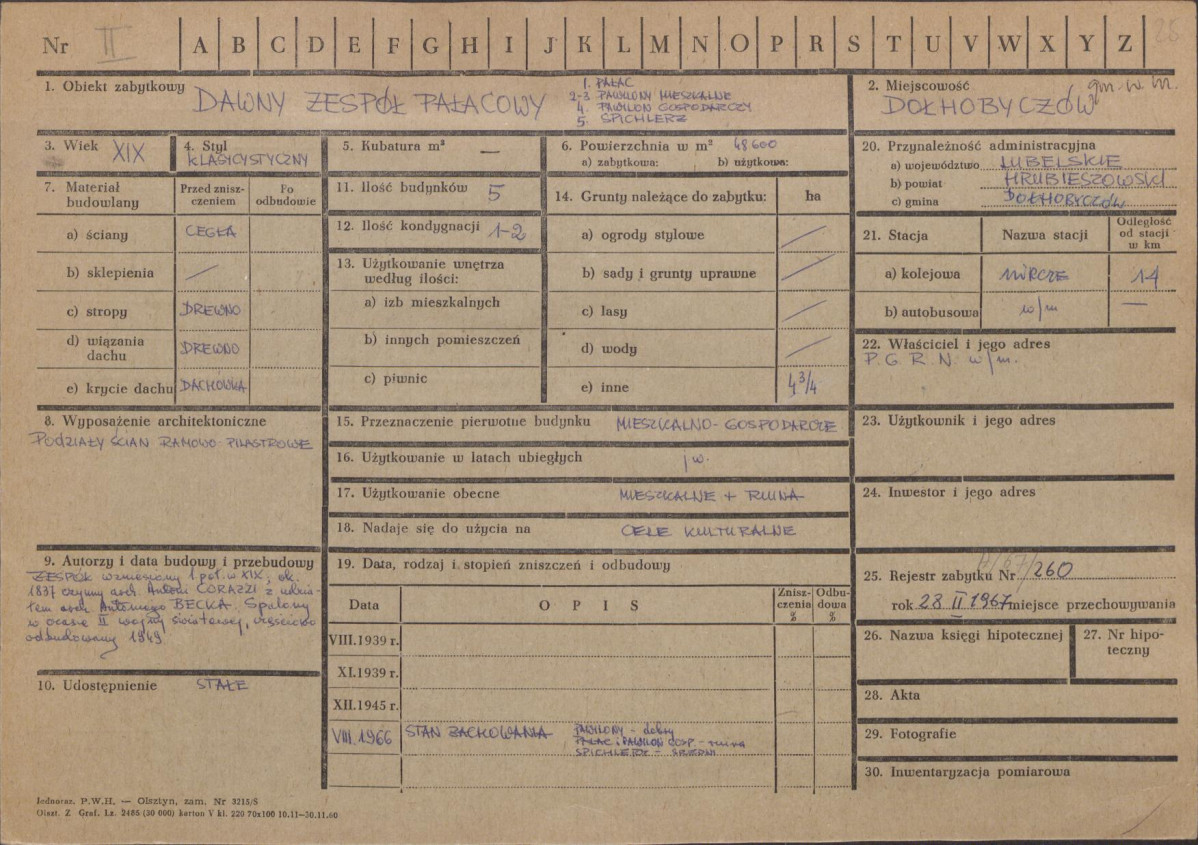 Nr II A B C D E F G H I J K L M N O P R S T U V W X Y Z 26
1. Obiekt zabytkowy DAWNY ZESPÓŁ PAŁACOWY
1. PAŁAC
2-3 PAWILONY MIESZKALNE
4. PAWILON GOSPODARCZY
5. SPICHLERZ
2. Miejscowość gm. w m.
DOŁHOBYCZÓW
3. Wiek XIX
4. Styl
KLASYCYSTYCZNY
5. Kubatura m³ —
6. Powierzchnia w m² 48600
a) zabytkowa: b) użytkowa:
20. Przynależność administracyjna
a) województwo LUBELSKIE
b) powiat HRUBIESZOWSKI
c) gmina DOŁHOBYCZÓW
7. Materiał budowlany
Przed znisz-
czeniem
Po
odbudowie
a) ściany CEGŁA
b) sklepienia /
c) stropy DREWNO
d) wiązania
dachu DREWNO
e) krycie dachu DACHÓWKA
11. Ilość budynków 5
12. Ilość kondygnacji 1-2
13. Użytkowanie wnętrza
według ilości:
a) izb mieszkalnych
b) innych pomieszczeń
c) piwnic
14. Grunty należące do zabytku: ha
a) ogrody stylowe /
b) sady i grunty uprawne /
c) lasy /
d) wody /
e) inne 4 3/4
21. Stacja Nazwa stacji
Odległość
od stacji
w km
a) kolejowa MIRCZE 14
b) autobusowa w/m —
22. Właściciel i jego adres
P. G. R. N. w/m.
8. Wyposażenie architektoniczne
PODZIAŁY ŚCIAN RAMOWO-PILASTROWE
15. Przeznaczenie pierwotne budynku MIESZKALNO-GOSPODARCZE
16. Użytkowanie w latach ubiegłych jw.
17. Użytkowanie obecne MIESZKALNE + RUINA
18. Nadaje się do użycia na CELE KULTURALNE
23. Użytkownik i jego adres
24. Inwestor i jego adres
9. Autorzy i data budowy i przebudowy
ZESPÓŁ wzniesiony 1 poł. w XIX, ok.
1837 czynny arch. Antoni CORAZZI z udzia-
łem arch. Antoniego BECKA. Spalony
w czasie II wojny światowej, częściowo
odbudowany 1949
10. Udostępnienie STAŁE
19. Data, rodzaj i stopień zniszczeń i odbudowy
Data O P I S
Znisz-
czenia
%
Odbu-
dowa
%
VIII.1939 r.
XI.1939 r.
XII.1945 r.
VIII.1966 STAN ZACHOWANIA
PAWILONY - dobry
PAŁAC i PAWILON GOSP. - ruina
SPICHLERZ - ŚREDNI
25. Rejestr zabytku Nr A/67/260
rok 28 II 1967 miejsce przechowywania
26. Nazwa księgi hipotecznej
27. Nr hipo-
teczny
28. Akta
29. Fotografie
30. Inwentaryzacja pomiarowa
Jednoraz. P.W.H. — Olsztyn, zam. Nr 3215/S
Olszt. Z Graf. Lz. 2486 (30 000) karton V kl. 220 70x100 10.11—30.11.60